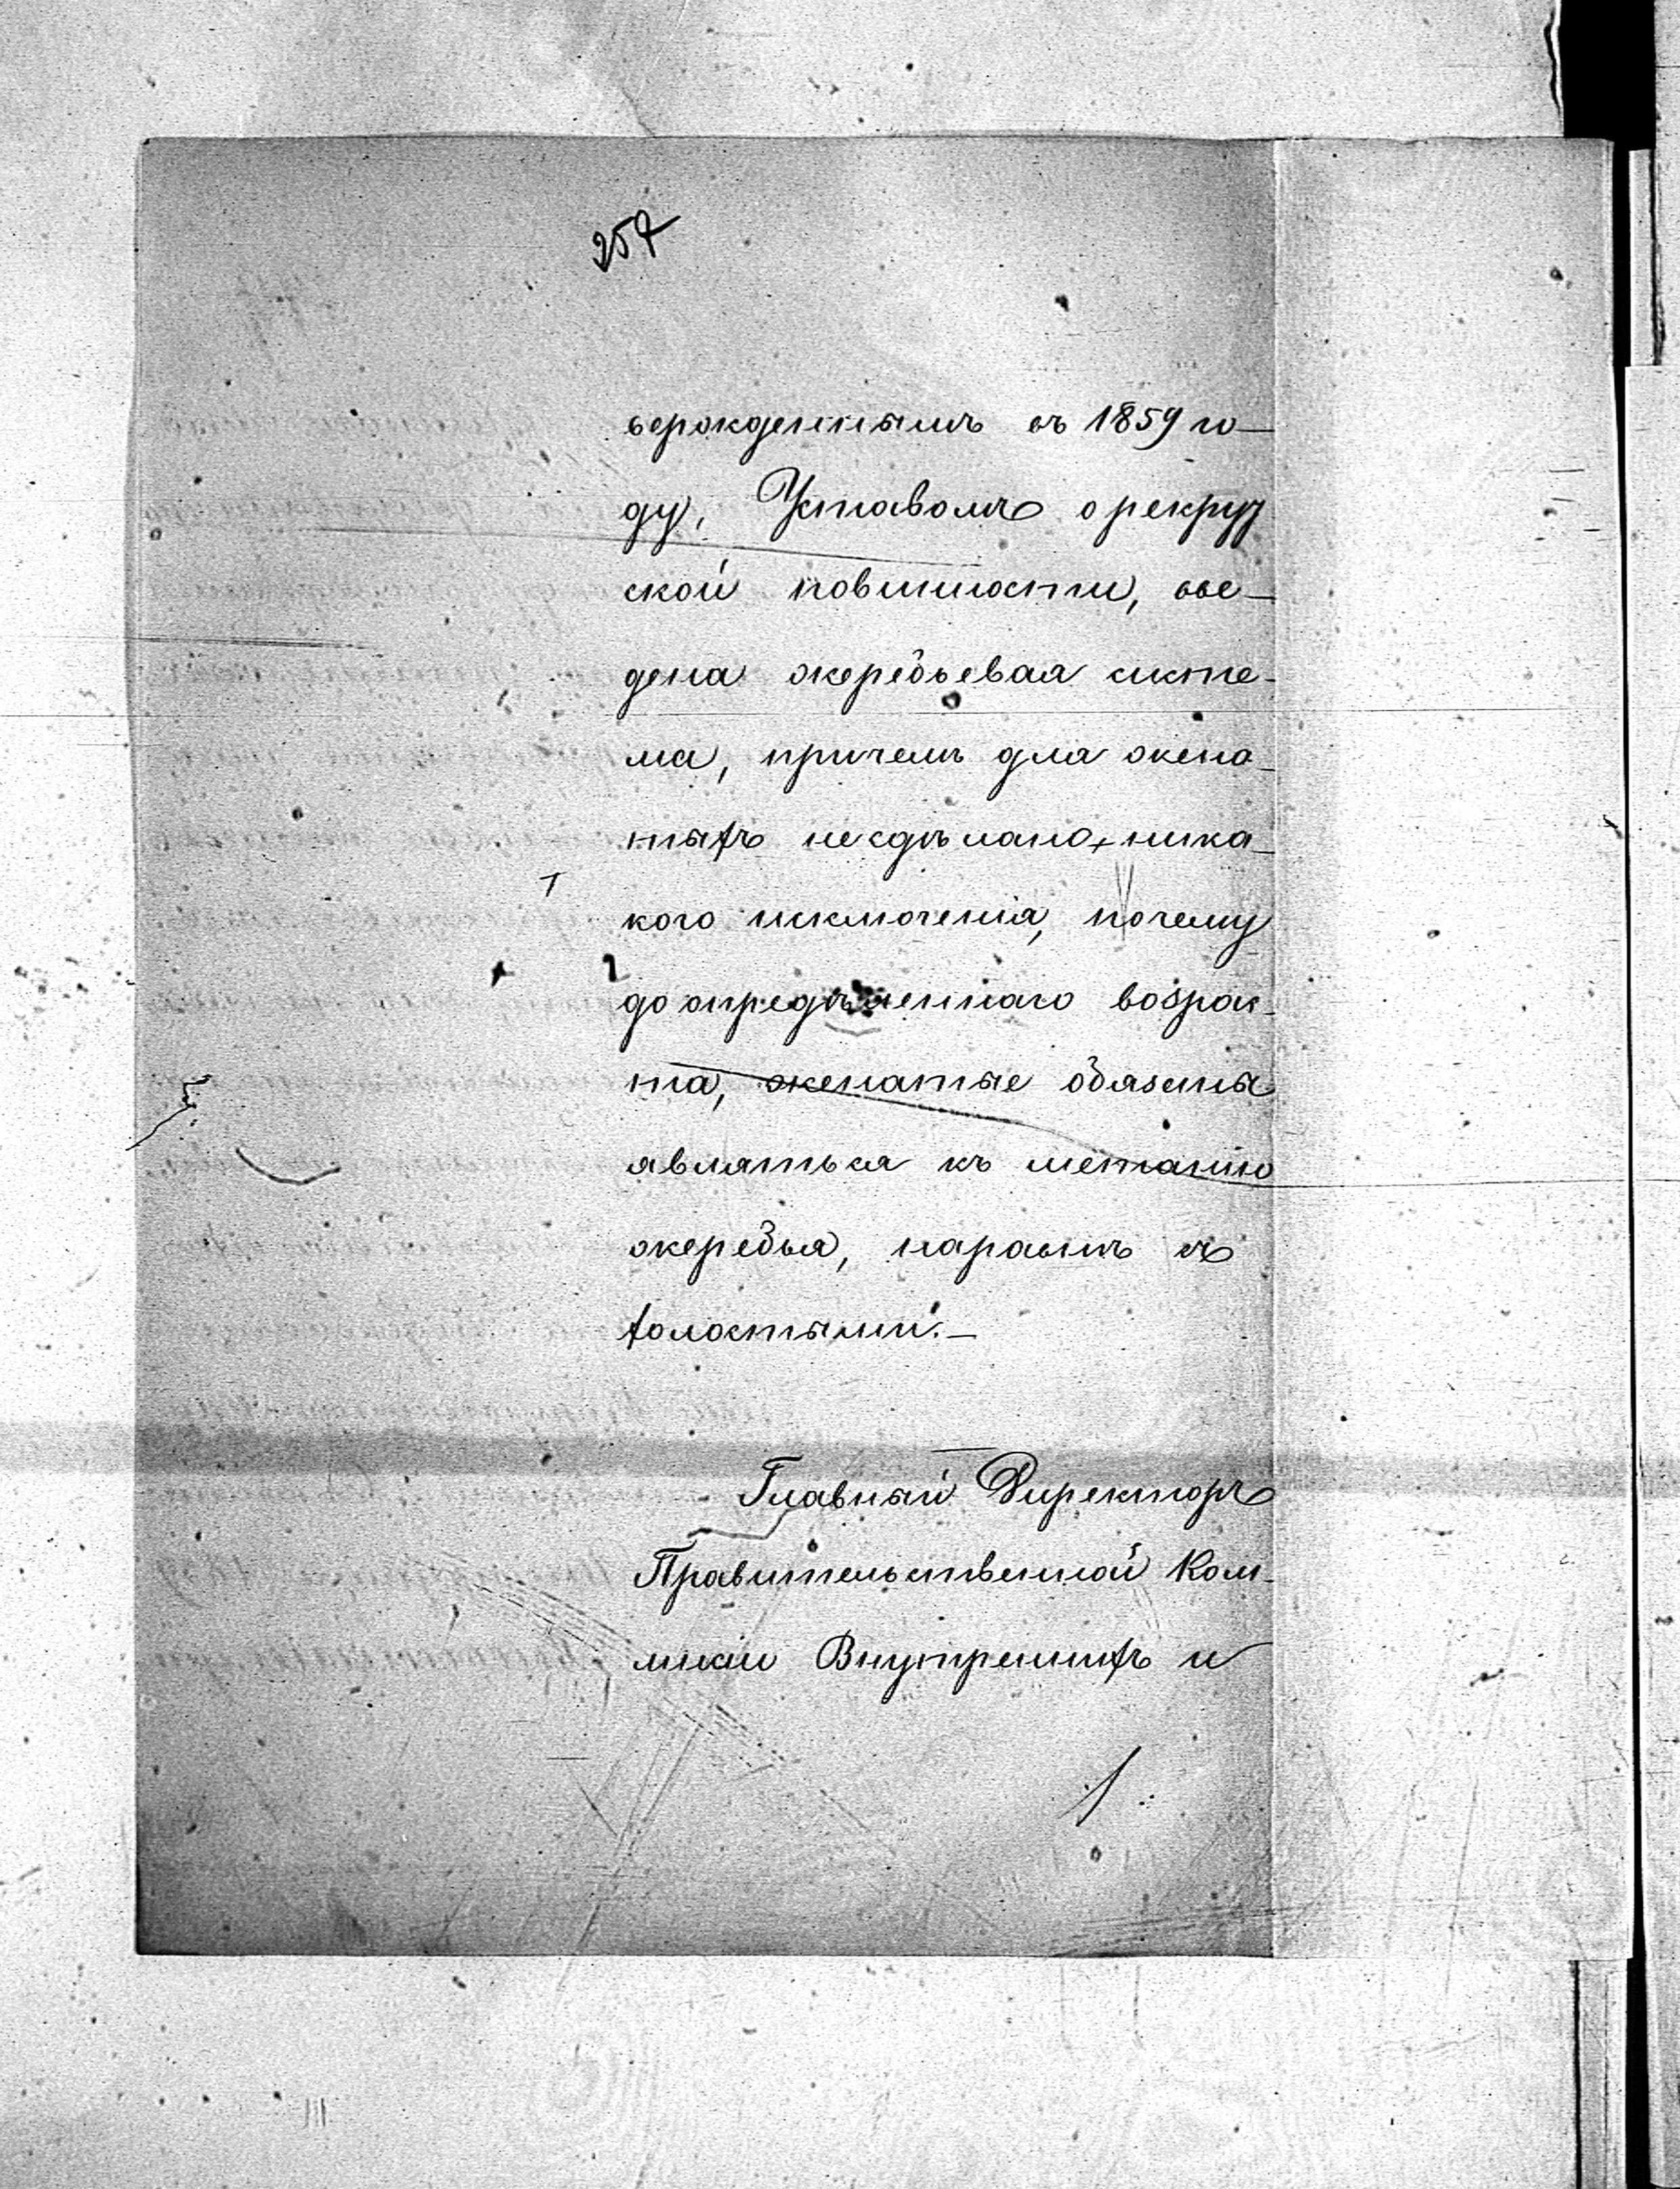 257
вержденнымъ въ 1859 го-
ду, Уставомъ о рекрут
ской повинности, вве-
дена жеребьевая систе-
ма, причемъ для жена-
тыхъ не сдѣлано, ника-
кого исключенія, почему
до опредѣленнаго возрас-
та, женатые обязаны
являться къ метанію
жеребья, наравнѣ съ
холостыми.—
Главный Директоръ
Правительственной Ком-
мисіи Внутреннихъ и